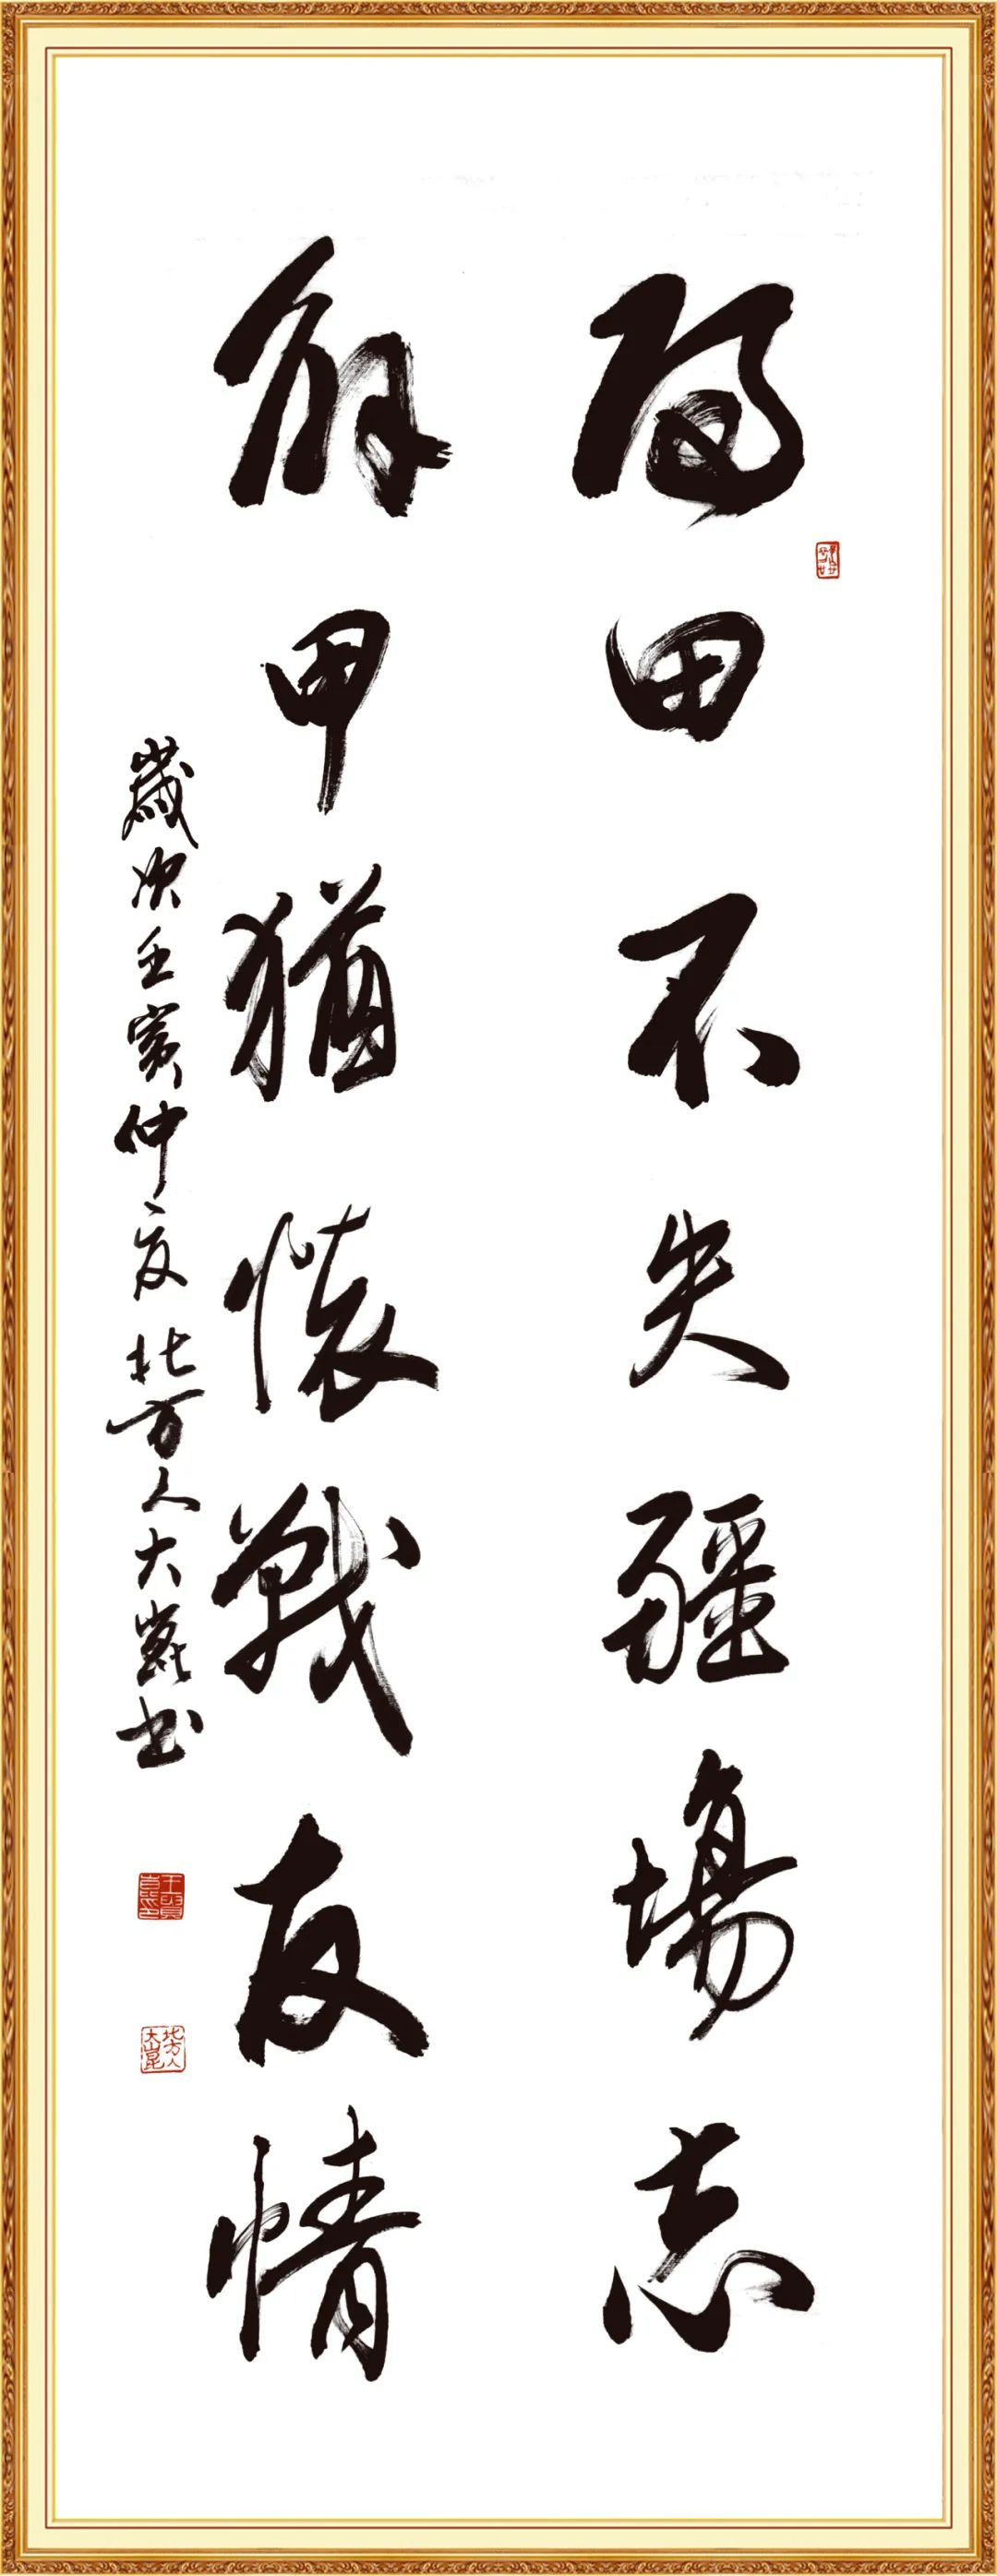 歸田不失疆場志
解甲猶懷戰友情
歲次壬寅仲夏北方人大崑书
北方人大崑